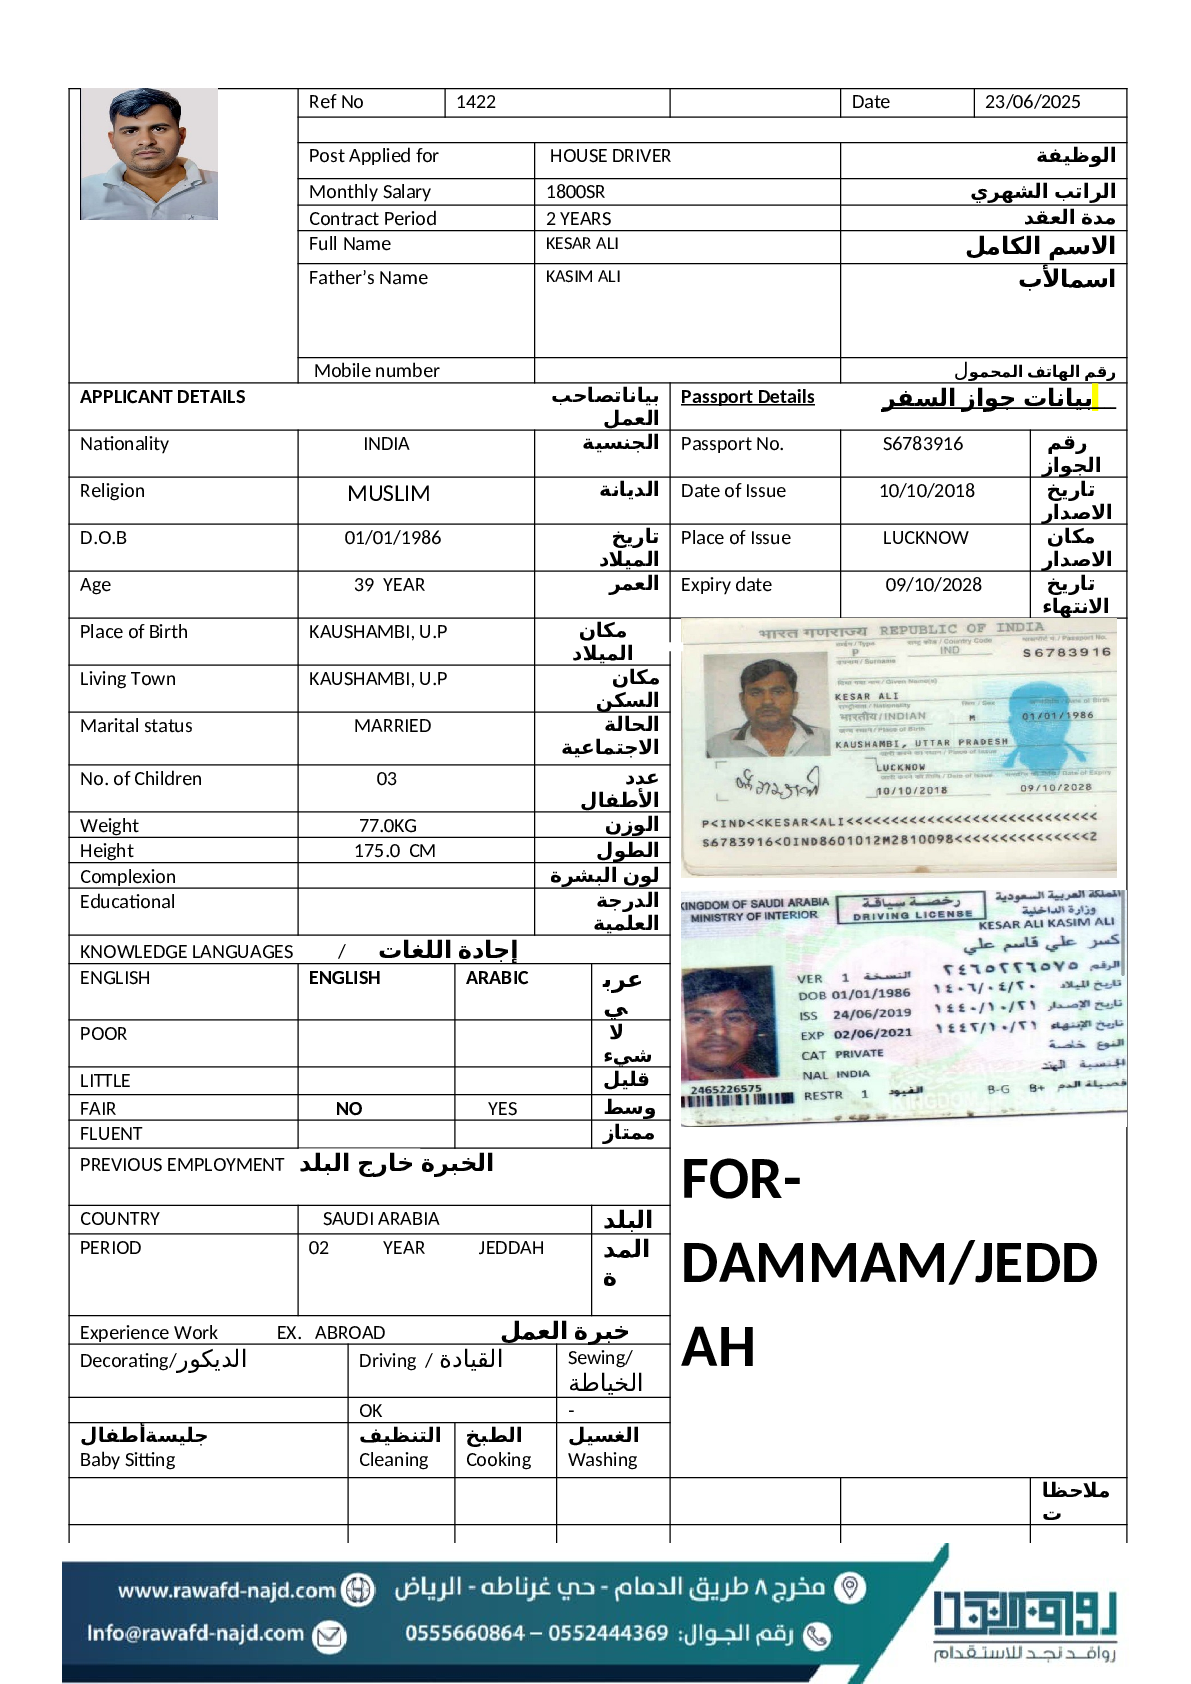 Ref No 1422 Date 23/06/2025
Post Applied for HOUSE DRIVER الوظيفة
Monthly Salary 1800SR الراتب الشهري
Contract Period 2 YEARS مدة العقد
Full Name KESAR ALI الاسم الكامل
Father’s Name KASIM ALI اسمالأب
Mobile number رقم الهاتف المحمول
APPLICANT DETAILS بياناتصاحب العمل Passport Details بيانات جواز السفر
Nationality INDIA الجنسية Passport No. S6783916 رقم الجواز
Religion MUSLIM الديانة Date of Issue 10/10/2018 تاريخ الاصدار
D.O.B 01/01/1986 تاريخ الميلاد Place of Issue LUCKNOW مكان الاصدار
Age 39 YEAR العمر Expiry date 09/10/2028 تاريخ الانتهاء
Place of Birth KAUSHAMBI, U.P مكان الميلاد
Living Town KAUSHAMBI, U.P مكان السكن
Marital status MARRIED الحالة الاجتماعية
No. of Children 03 عدد الأطفال
Weight 77.0KG الوزن
Height 175.0 CM الطول
Complexion لون البشرة
Educational الدرجة العلمية
KNOWLEDGE LANGUAGES / إجادة اللغات
ENGLISH ENGLISH ARABIC عربي
POOR لا شيء
LITTLE قليل
FAIR NO YES وسط
FLUENT ممتاز
PREVIOUS EMPLOYMENT الخبرة خارج البلد
COUNTRY SAUDI ARABIA البلد
PERIOD 02 YEAR JEDDAH المدة
Experience Work EX. ABROAD خبرة العمل
Decorating/الديكور Driving / القيادة Sewing/ الخياطة
OK -
جليسةأطفال التنظيف الطبخ الغسيل
Baby Sitting Cleaning Cooking Washing
भारत गणराज्य REPUBLIC OF INDIA
P IND S6783916
KESAR ALI
भारतीय/INDIAN M 01/01/1986
KAUSHAMBI, UTTAR PRADESH
LUCKNOW
10/10/2018 09/10/2028
P<IND<<KESAR<ALI<<<<<<<<<<<<<<<<<<<<<<<<<<<<
S6783916<0IND8601012M2810098<<<<<<<<<<<<<<<2
KINGDOM OF SAUDI ARABIA رخصة سياقة المملكة العربية السعودية
MINISTRY OF INTERIOR DRIVING LICENSE وزارة الداخلية
KESAR ALI KASIM ALI
كسر علي قاسم علي
الرقم ٢٤٦٥٢٢٦٥٧٥
VER 1 النسخة
DOB 01/01/1986 ١٤٠٦/٠٤/٢٠ تاريخ الميلاد
ISS 24/06/2019 ١٤٤٠/١٠/٢١ تاريخ الإصدار
EXP 02/06/2021 ١٤٤٢/١٠/٢١ تاريخ الإنتهاء
CAT PRIVATE النوع خاصة
NAL INDIA الجنسية الهند
2465226575 RESTR 1 القيود B-G B+ فصيلة الدم
FOR-
DAMMAM/JEDD
AH
ملاحظات
www.rawafd-najd.com مخرج ٨ طريق الدمام - حي غرناطه - الرياض
Info@rawafd-najd.com رقم الجوال: 0552444369 – 0555660864
روافد نجد
روافد نجد للاستقدام